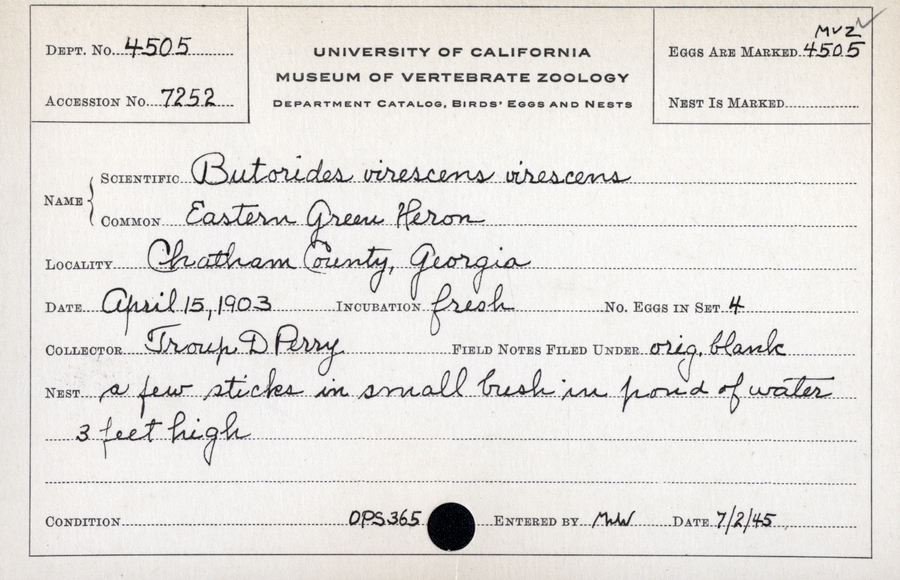 DEPT. NO. 4505
ACCESSION NO. 7252
UNIVERSITY OF CALIFORNIA
MUSEUM OF VERTEBRATE ZOOLOGY
DEPARTMENT CATALOG, BIRDS' EGGS AND NESTS
MVZ
EGGS ARE MARKED 4505
NEST IS MARKED
NAME
SCIENTIFIC Butorides virescens virescens
COMMON Eastern Green Heron
LOCALITY Chatham County, Georgia
DATE April 15, 1903 INCUBATION fresh NO. EGGS IN SET 4
COLLECTOR Troup D Perry FIELD NOTES FILED UNDER orig. blank
NEST a few sticks in small bush in pond of water
3 feet high
CONDITION OPS365 ENTERED BY DATE 7/2/45